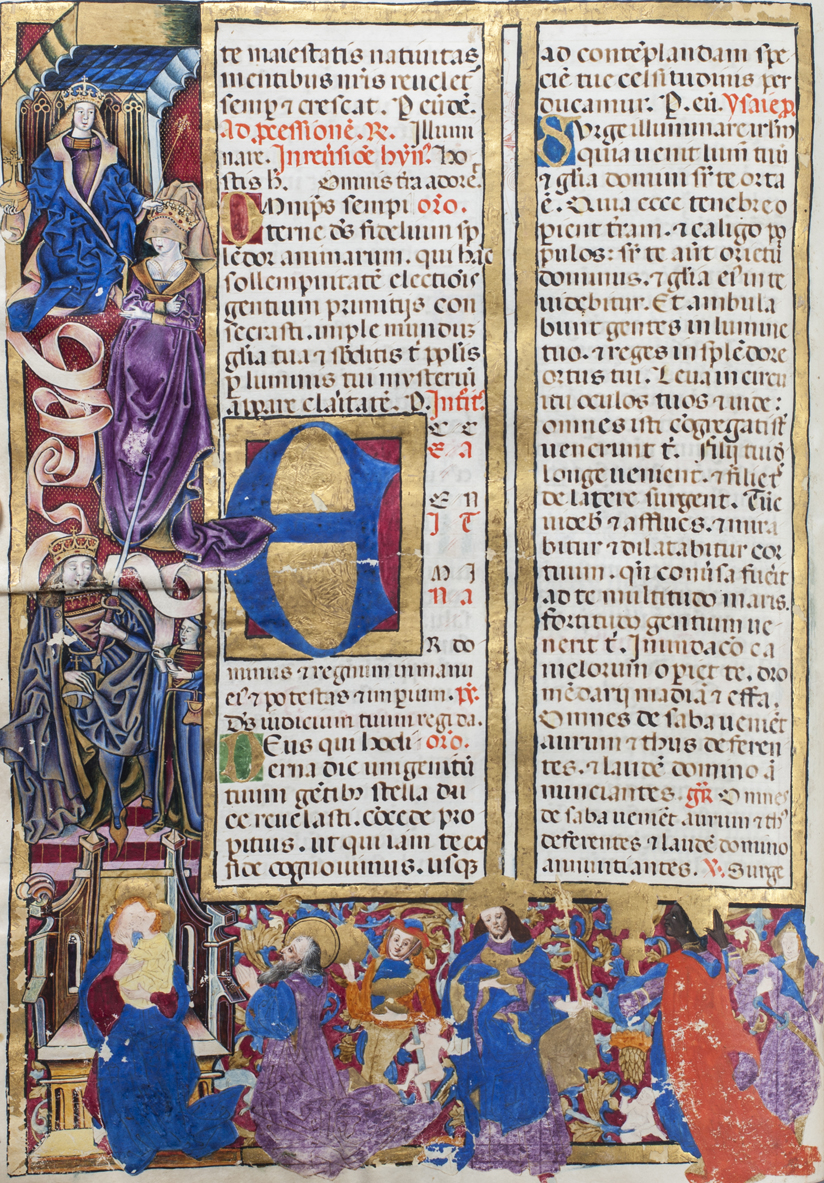 te maiestatis natiuitas
mentibus nr̄is reuelet᷑
semp ⁊ crescat. P eūdē.
Ad p̱cessionē. R. Illumi
nare. Inreūsiōe hȳn᷑. ho
stis h̄. Omnis tr̄a adorē.
OMnip̄s sempi or̄o.
terne ds̄ fidelium sp̄
lēdor animarum. qui hāc
sollempnitatē electiōis
gentium primitijs con
secrasti. imple mundū
gl̄ia tua ⁊ sb̄ditis t᷑ pp̄lis
p luminis tui mysteriū
appare claritatē. P. Infir᷑.
E C C
E A
E N
I T
M I
N A
R do
minus ⁊ regnum in manu
ei᷑ ⁊ potestas ⁊ impium. p̄s.
Ds̄ iudicium tuum regi da.
DEus qui hodi or̄o.
erna die unigenitū
tuum gētibꝫ stella du
ce reuelasti. cōcede pro
pitius. ut qui iam te ex
fide cognouimus. usqꝫ
ad contēplandam spe
ciē tue celsitudinis per
ducamur. P. eū. Ysaie p̄.
SUrge illuminare irl̄m
quia uenit lum̄ tuū
⁊ gl̄ia domini sr̄ te orta
ē. Quia ecce tenebre o
pient tr̄am. ⁊ caligo po
pulos: sr̄ te aūt orietu᷑
dominus. ⁊ gl̄ia ei᷑ in te
uidebitur. Et ambula
bunt gentes in lumine
tuo. ⁊ reges in splēdore
ortus tui. Leua in circu
itu oculos tuos ⁊ uide:
omnes isti cōgregati st᷑
uenerunt t᷑. Filij tui d᷑
longe uenient. ⁊ filie t᷑
de latere surgent. Tūc
uideb᷑ ⁊ afflues. ⁊ mira
bitur ⁊ dilatabitur cor
tuum. qn̄ conūsa fuēit
ad te multitudo maris.
fortitudo gentium ue
nerit t᷑. Inundacō ca
melorum opiet te. dro
mēdarij madiā ⁊ effa.
Omnes de saba uenient
aurum ⁊ thus deferen
tes. ⁊ laudē domino ā
nunciantes. gr̄. Omnes
de saba ueniēt aurum ⁊ th᷑
deferentes ⁊ laudē domino
annuntiantes. V. Surge